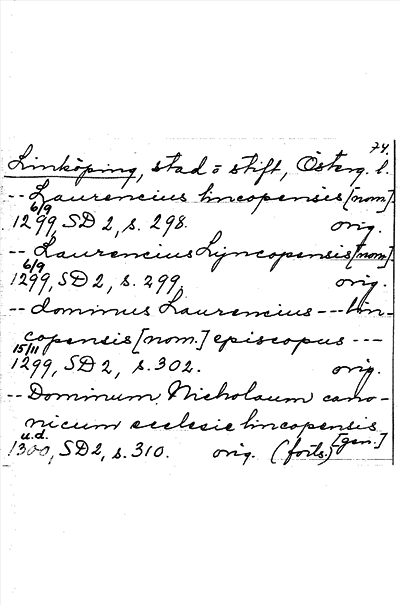 74.
Linköping, stad o stift, Österg. l.
-- Laurencius lincopensis [nom.]
6/9
1299, SD 2, s. 298. orig.
-- Laurencius Lyncopensis [nom.]
6/9
1299, SD 2, s. 299. orig.
-- dominus Laurencius --- lin-
copensis [nom.] episcopus ---
15/11
1299, SD 2, s. 302. orig.
-- Dominum Nicholaum cano-
nicum ecclesie lincopensis
[gen.]
u.d.
1300, SD 2, s. 310. orig. (forts.)